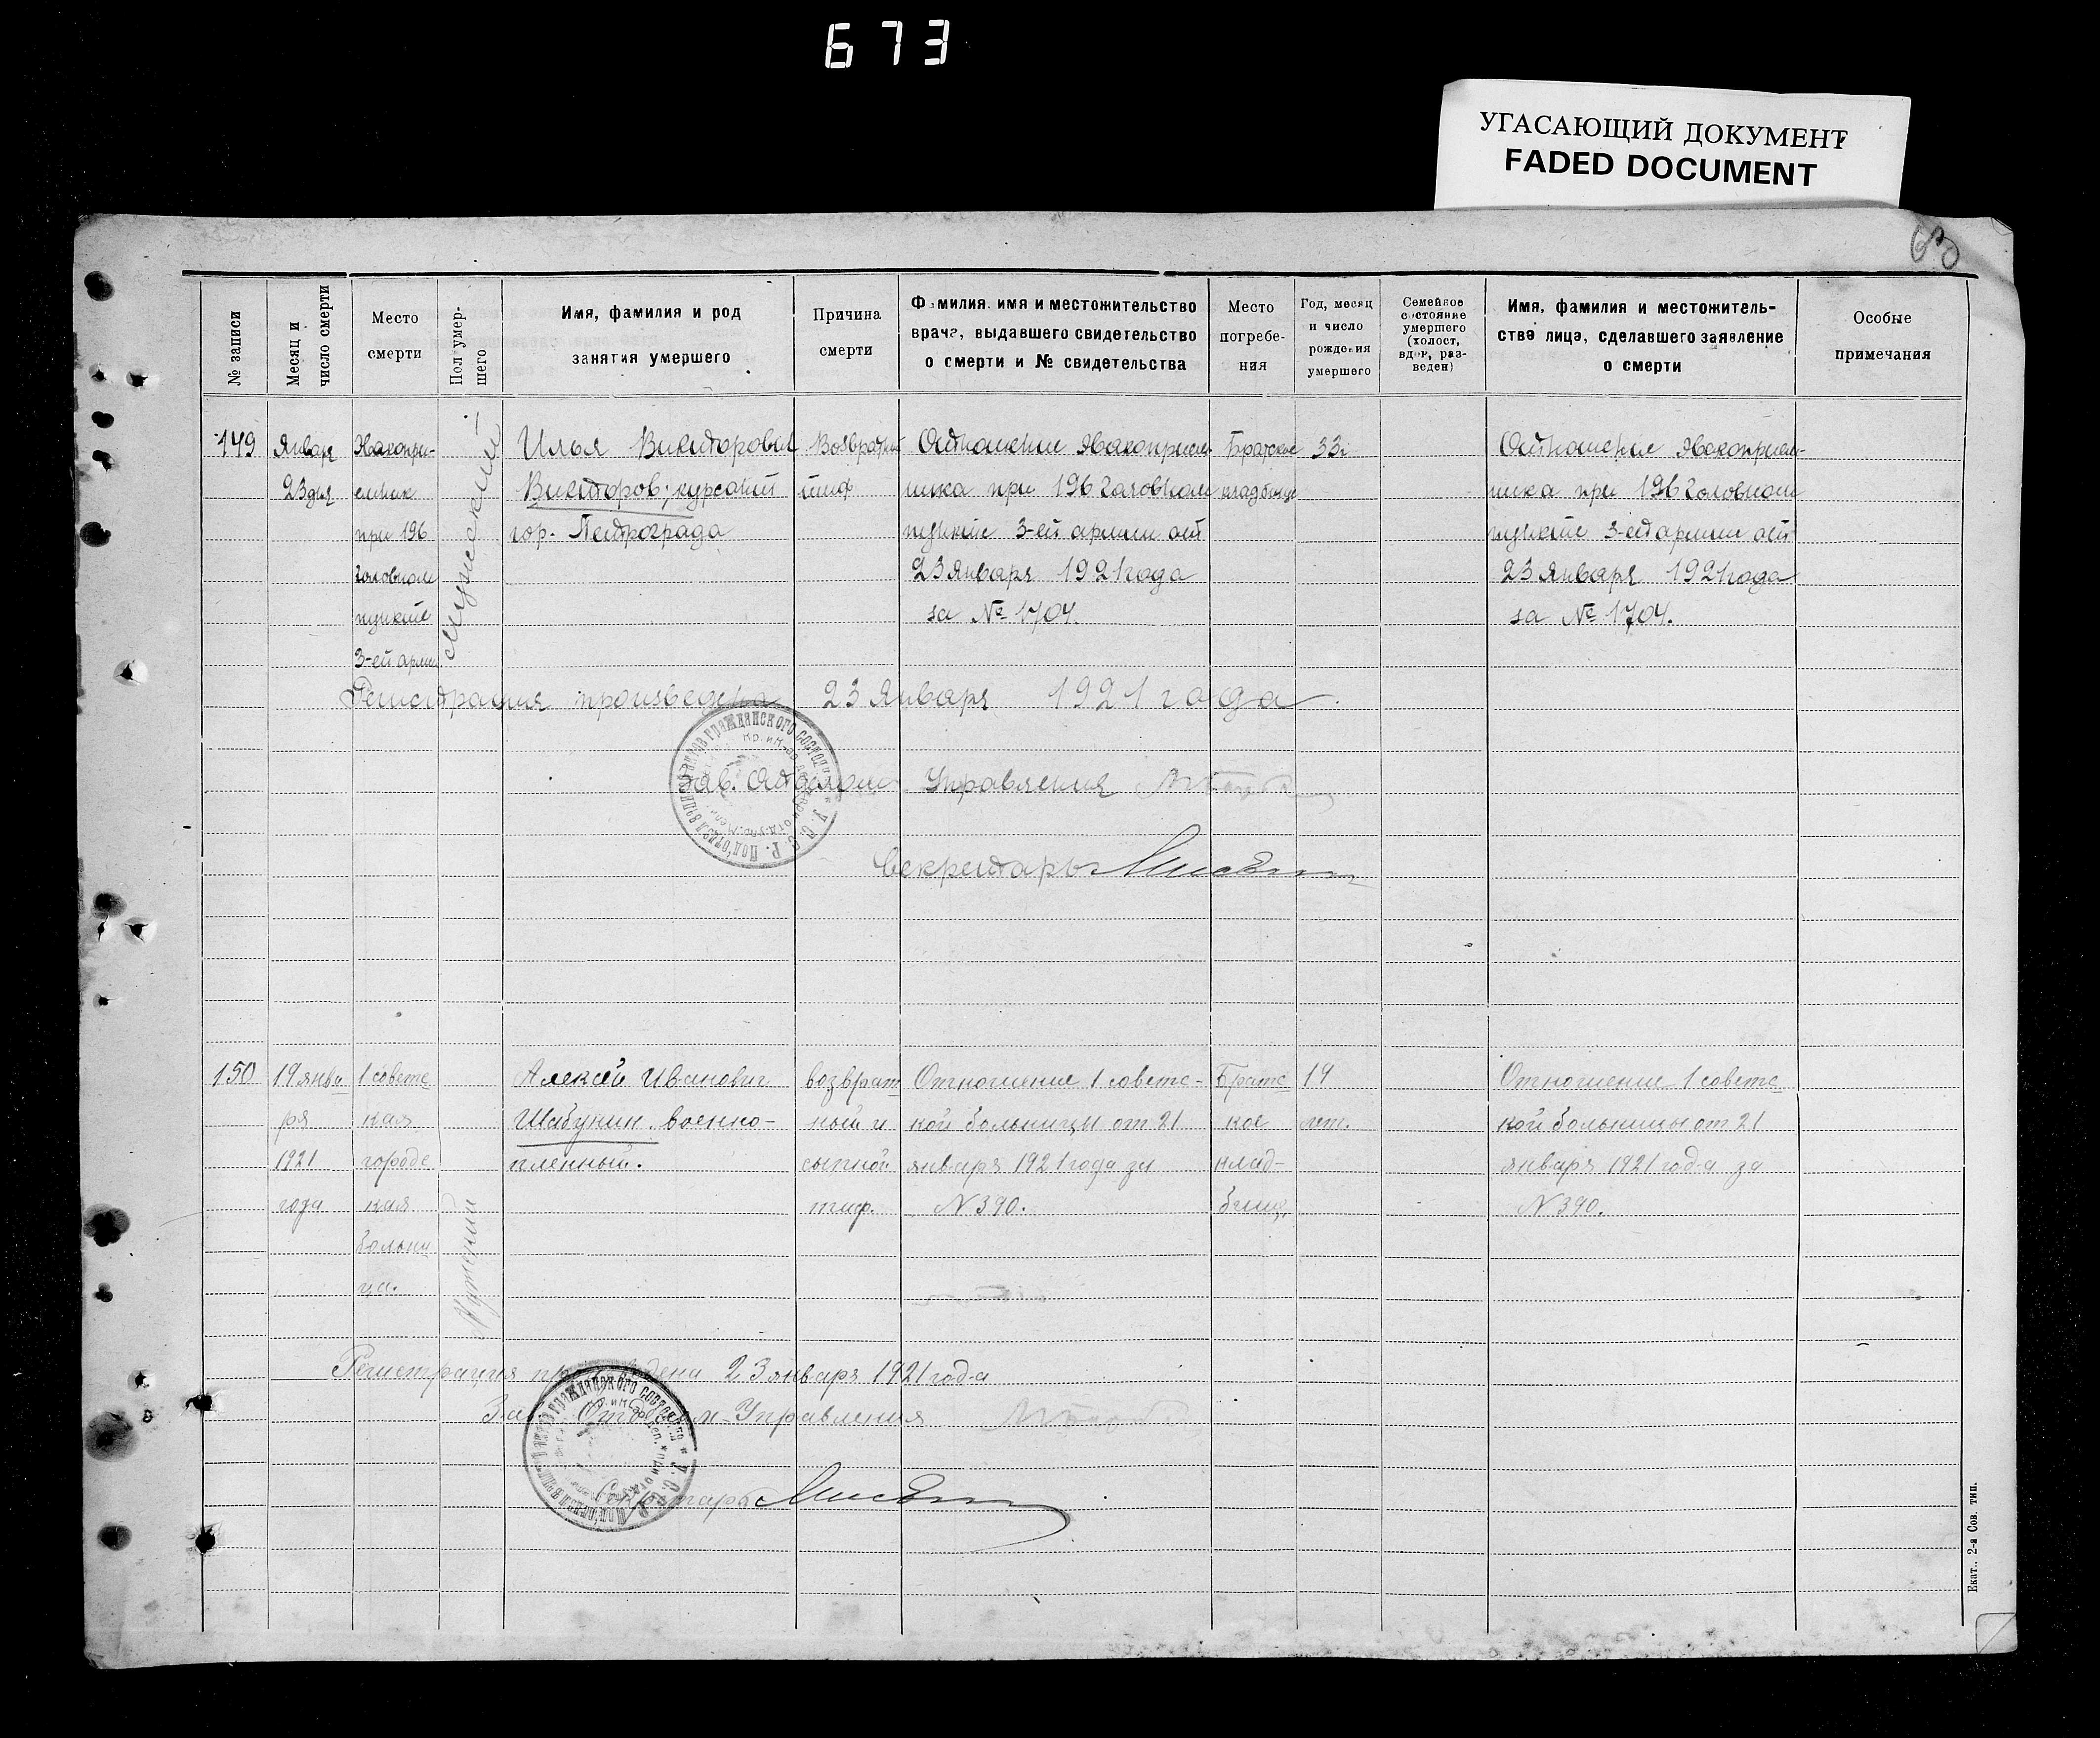 673
УГАСАЮЩИЙ ДОКУМЕНТ
FADED DOCUMENT
63
№ записи
Месяц и
число смерти
Место
смерти
Пол умер-
шего
Имя, фамилия и род
занятия умершего
Причина
смерти
Фамилия, имя и местожительство
врача, выдавшего свидетельство
о смерти и № свидетельства
Место
погребе-
ния
Год, месяц
и число
рождения
умершего
Семейное
состояние
умершего
(холост,
вдов, раз-
веден)
Имя, фамилия и местожитель-
ство лица, сделавшего заявление
о смерти
Особые
примечания
149
Январь
23 дня
при 196
головном
пункте
3-ей арми
Мужской
Илья Викторович
Викторов; курсант
гор. Петрограда
Возвратный
тиф
Отношение
ника при 196 головном
пункте 3-ей армии от
23 Января 1921 года
за № 1704.
Братское
кладбище
33
Отношение
ника при 196 головном
пункте 3-ей армии от
23 Января 1921 года
за № 1704.
Регистрация произведена 23 Января 1921 года.
Зав. Отделом Управления
Секретарь
150
19 янва
ря
1921
года
1 советс
кая
городс
кая
больни
ца.
Мужской
Алексей Иванович
Шабунин. военно-
пленный.
возврат
ный и
сыпной
тиф.
Отношение 1 советс-
кой больницы от 21
января 1921 года за
N 390.
Братс
кое
клад-
бище.
19
лет.
Отношение 1 советс
кой больницы от 21
января 1921 года за
N 390.
Регистрация произведена 23 января 1921 года
Зав. Отделом Управления
Секретарь
Екат.. 2-я Сов. тип.